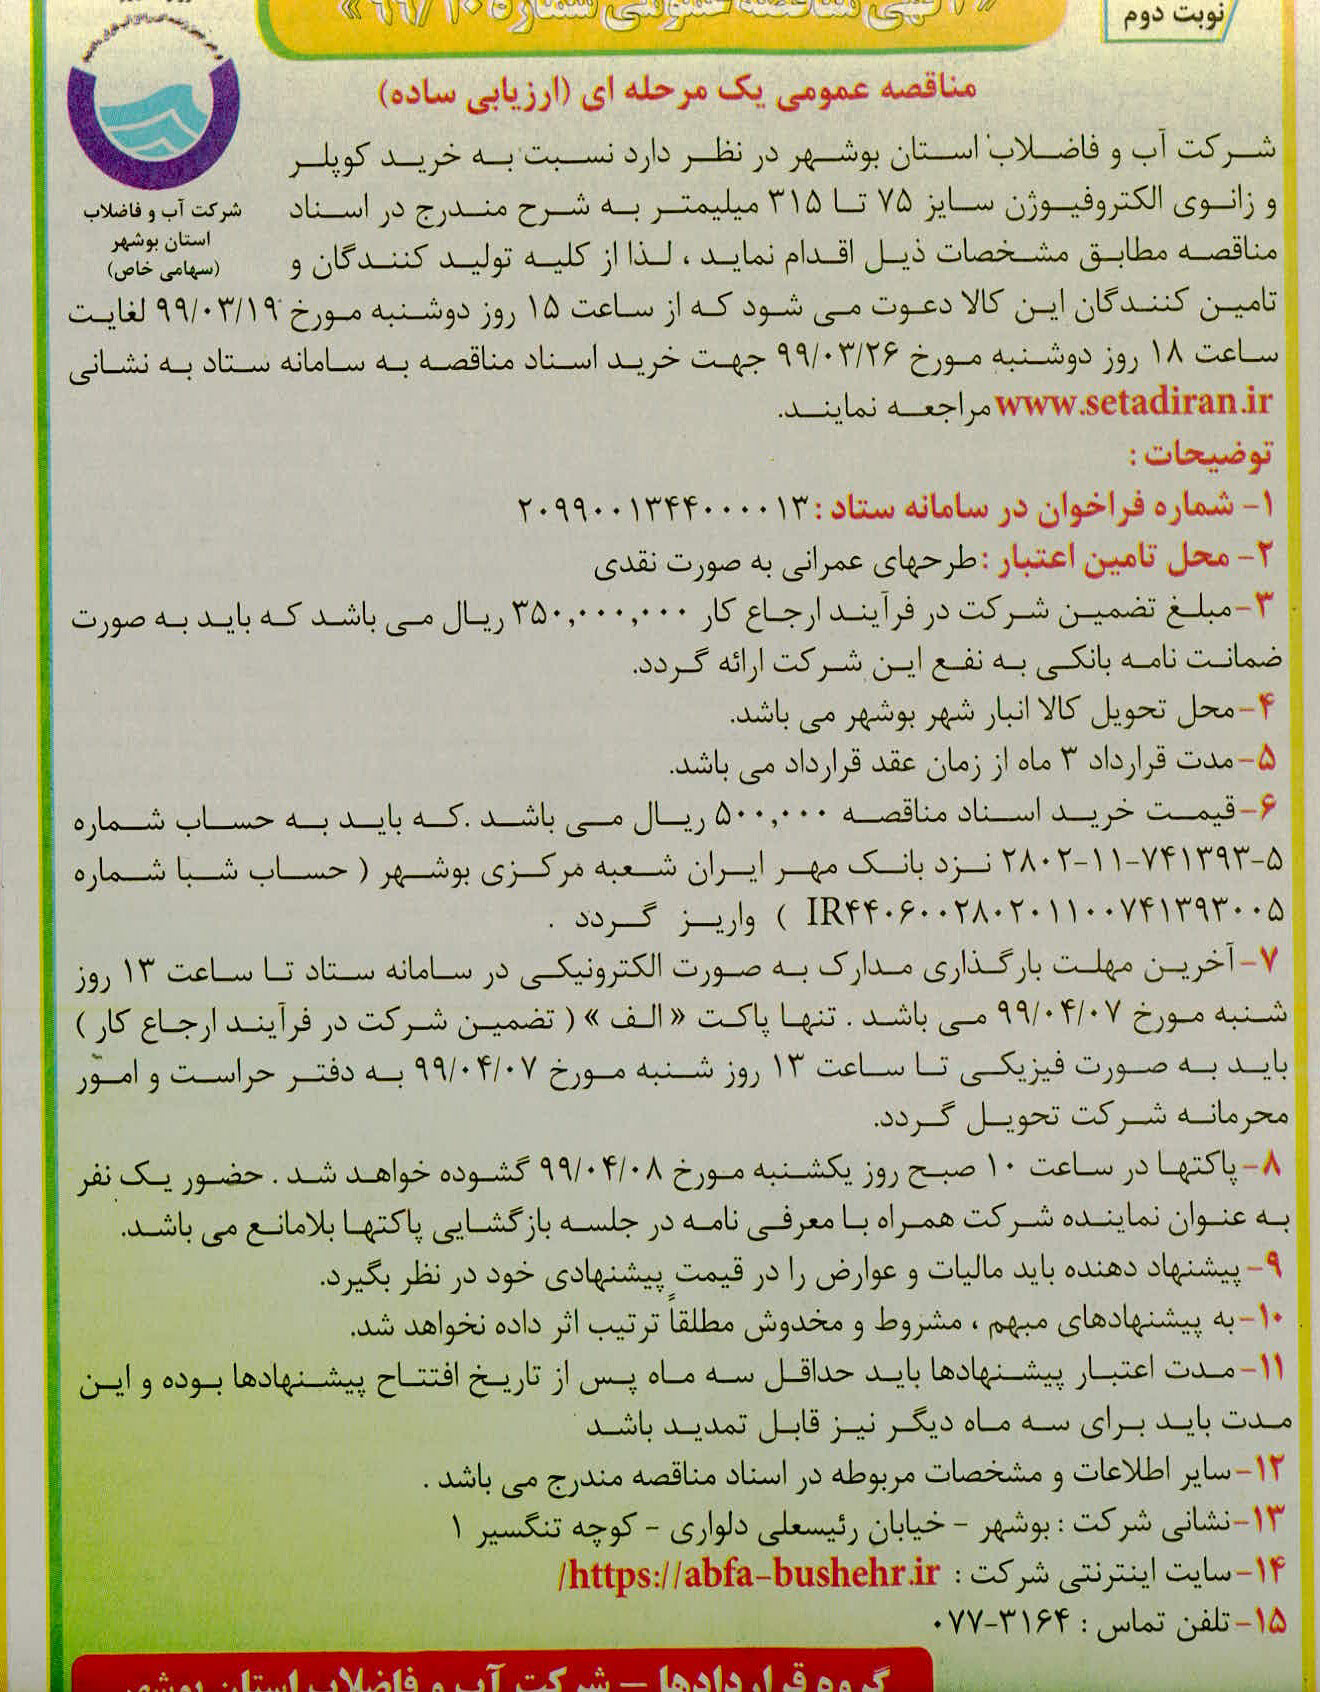 نوبت دوم
« آگهی مناقصه عمومی شماره ۹۹/۱۰ »
مناقصه عمومی یک مرحله ای (ارزیابی ساده)
شرکت آب و فاضلاب استان بوشهر در نظر دارد نسبت به خرید کوپلر
و زانوی الکتروفیوژن سایز ۷۵ تا ۳۱۵ میلیمتر به شرح مندرج در اسناد
مناقصه مطابق مشخصات ذیل اقدام نماید ، لذا از کلیه تولید کنندگان و
تامین کنندگان این کالا دعوت می شود که از ساعت ۱۵ روز دوشنبه مورخ ۹۹/۰۳/۱۹ لغایت
ساعت ۱۸ روز دوشنبه مورخ ۹۹/۰۳/۲۶ جهت خرید اسناد مناقصه به سامانه ستاد به نشانی
www.setadiran.ir مراجعه نمایند.
شرکت آب و فاضلاب
استان بوشهر
(سهامی خاص)
توضیحات :
۱- شماره فراخوان در سامانه ستاد : ۲۰۹۹۰۰۱۳۴۴۰۰۰۰۱۳
۲- محل تامین اعتبار : طرحهای عمرانی به صورت نقدی
۳-مبلغ تضمین شرکت در فرآیند ارجاع کار ۳۵۰,۰۰۰,۰۰۰ ریال می باشد که باید به صورت
ضمانت نامه بانکی به نفع این شرکت ارائه گردد.
۴-محل تحویل کالا انبار شهر بوشهر می باشد.
۵-مدت قرارداد ۳ ماه از زمان عقد قرارداد می باشد.
۶-قیمت خرید اسناد مناقصه ۵۰۰,۰۰۰ ریال می باشد .که باید به حساب شماره
۲۸۰۲-۱۱-۷۴۱۳۹۳-۵ نزد بانک مهر ایران شعبه مرکزی بوشهر ( حساب شبا شماره
IR۴۴۰۶۰۰۲۸۰۲۰۱۱۰۰۷۴۱۳۹۳۰۰۵ ) واریز گردد .
۷-آخرین مهلت بارگذاری مدارک به صورت الکترونیکی در سامانه ستاد تا ساعت ۱۳ روز
شنبه مورخ ۹۹/۰۴/۰۷ می باشد . تنها پاکت « الف » ( تضمین شرکت در فرآیند ارجاع کار )
باید به صورت فیزیکی تا ساعت ۱۳ روز شنبه مورخ ۹۹/۰۴/۰۷ به دفتر حراست و امور
محرمانه شرکت تحویل گردد.
۸-پاکتها در ساعت ۱۰ صبح روز یکشنبه مورخ ۹۹/۰۴/۰۸ گشوده خواهد شد . حضور یک نفر
به عنوان نماینده شرکت همراه با معرفی نامه در جلسه بازگشایی پاکتها بلامانع می باشد.
۹- پیشنهاد دهنده باید مالیات و عوارض را در قیمت پیشنهادی خود در نظر بگیرد.
۱۰-به پیشنهادهای مبهم ، مشروط و مخدوش مطلقاً ترتیب اثر داده نخواهد شد.
۱۱-مدت اعتبار پیشنهادها باید حداقل سه ماه پس از تاریخ افتتاح پیشنهادها بوده و این
مدت باید برای سه ماه دیگر نیز قابل تمدید باشد
۱۲-سایر اطلاعات و مشخصات مربوطه در اسناد مناقصه مندرج می باشد .
۱۳-نشانی شرکت : بوشهر - خیابان رئیسعلی دلواری - کوچه تنگسیر ۱
۱۴-سایت اینترنتی شرکت : https://abfa-bushehr.ir/
۱۵-تلفن تماس : ۳۱۶۴-۰۷۷
گروه قراردادها – شرکت آب و فاضلاب استان بوشهر